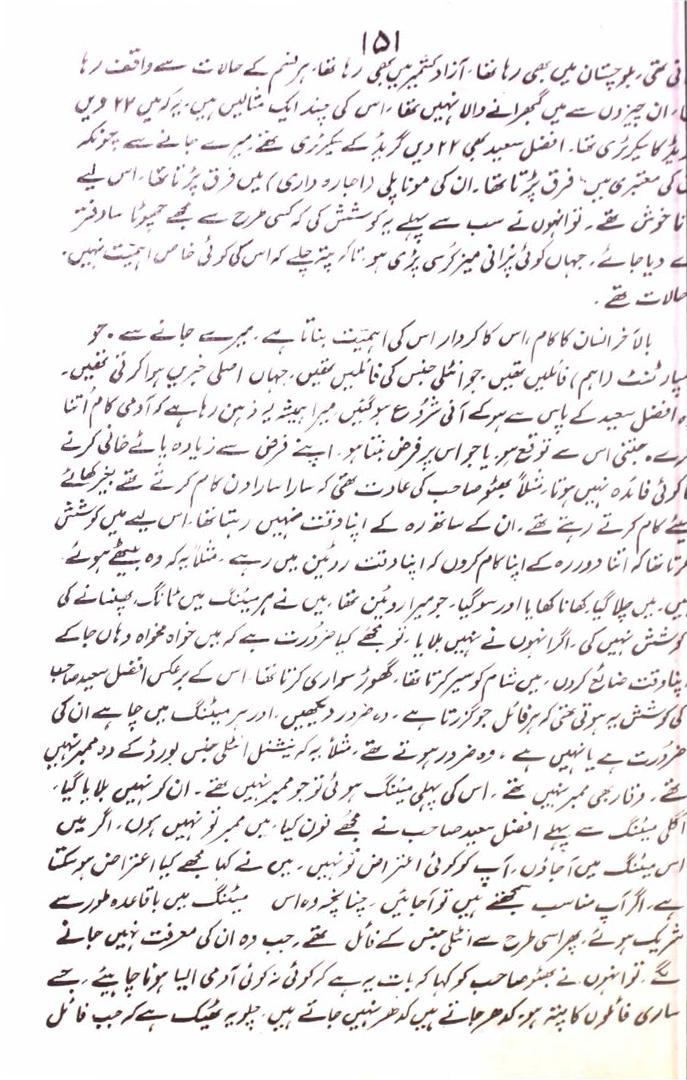 ۱۵۱
تی تھی، بلوچستان میں بھی رہا تھا، آزاد کشمیر میں بھی رہا تھا، ہر قسم کے حالات سے واقف رہا
تھا، ان چیزوں سے میں گھبرانے والا نہیں تھا، اس کی چند ایک مثالیں ہیں، یہ کہ میں ۲۲ ویں
گریڈ کا سیکرٹری تھا۔ افضل سعید بھی ۲۲ ویں گریڈ کے سیکرٹری تھے، میرے جانے سے چونکہ
کی معتبری میں فرق پڑتا تھا۔ ان کی مونا پلی (اجارہ داری) میں فرق پڑتا تھا، اس لیے
نا خوش تھے۔ تو انہوں نے سب سے پہلے یہ کوشش کی کہ کسی طرح سے مجھے چھوٹا سا دفتر
دے دیا جائے۔ جہاں کوئی پرانی میز کرسی پڑی ہو تاکہ پتہ چلے کہ اس کی کوئی خاص اہمیت نہیں۔
حالات تھے۔
بالآخر انسان کا کام، اس کا کردار اس کی اہمیت بناتا ہے۔ میرے جانے سے۔ جو
امپارٹنٹ (اہم) فائلیں تھیں۔ جو انٹیلی جنس کی فائلیں تھیں، جہاں اصلی خبریں ہوا کرتی تھیں۔
وہ افضل سعید کے پاس سے ہو کے آنی شروع ہو گئیں، میرا ہمیشہ یہ ذہن رہا ہے کہ آدمی کام اُتنا
کرے۔ جتنی اس سے توقع ہو۔ یا جو اس پر فرض بنتا ہو۔ اپنے فرض سے زیادہ کرنے
کا کوئی فائدہ نہیں ہوتا، مثلاً بھٹو صاحب کی عادت تھی کہ سارا سارا دن کام کرتے تھے بغیر کھائے
پیئے کام کرتے رہتے تھے۔ ان کے ساتھ رہ کے اپنا وقت نہیں رہتا تھا، اس لیے میں کوشش
کرتا تھا کہ اتنا دور رہ کے اپنا کام کروں کہ اپنا وقت روٹین میں رہے۔ مثلاً یہ کہ وہ بیٹھے ہوئے
ہیں۔ میں چلا گیا، کھانا کھایا اور سو گیا۔ جو میرا روٹین تھا، میں نے ہر میٹنگ میں ٹانگ پھنسانے کی
کوشش نہیں کی، اگر انہوں نے نہیں بلایا۔ تو مجھے کیا ضرورت ہے کہ میں خواہ مخواہ وہاں جا کے
اپنا وقت ضائع کروں۔ میں شام کو سیر کرتا تھا، گھوڑ سواری کرتا تھا، اس کے برعکس افضل سعید صاحب
کی کوشش یہ ہوتی تھی کہ ہر فائل جو گزرتا ہے۔ وہ ضرور دیکھیں، اور ہر میٹنگ میں چاہے ان کی
ضرورت ہے یا نہیں ہے، وہ ضرور ہوتے تھے، مثلاً یہ کہ نیشنل انٹیلی جنس بورڈ کے وہ ممبر نہیں
تھے۔ وقار بھی ممبر نہیں تھے۔ اس کی پہلی میٹنگ ہوئی تو جو ممبر نہیں تھے۔ ان کو نہیں بلایا گیا،
اگلی میٹنگ سے پہلے افضل سعید صاحب نے مجھے فون کیا، میں ممبر تو نہیں ہوں، اگر میں
اس میٹنگ میں آ جاؤں۔ آپ کو کوئی اعتراض تو نہیں۔ میں نے کہا مجھے کیا اعتراض ہو سکتا
ہے۔ اگر آپ مناسب سمجھتے ہیں تو آ جائیں۔ چنانچہ وہ اس میٹنگ میں باقاعدہ طور سے
شریک ہوئے۔ پھر اسی طرح سے انٹیلی جنس کے فائل تھے۔ جب وہ ان کی معرفت نہیں جانے
لگے۔ تو انہوں نے بھٹو صاحب کو کہا کہ بات یہ ہے کہ کوئی نہ کوئی آدمی ایسا ہونا چاہیئے۔ جسے
ساری فائلوں کا پتہ ہو۔ کدھر جاتے ہیں کدھر نہیں جاتے ہیں۔ چلو یہ ٹھیک ہے کہ جب فائل